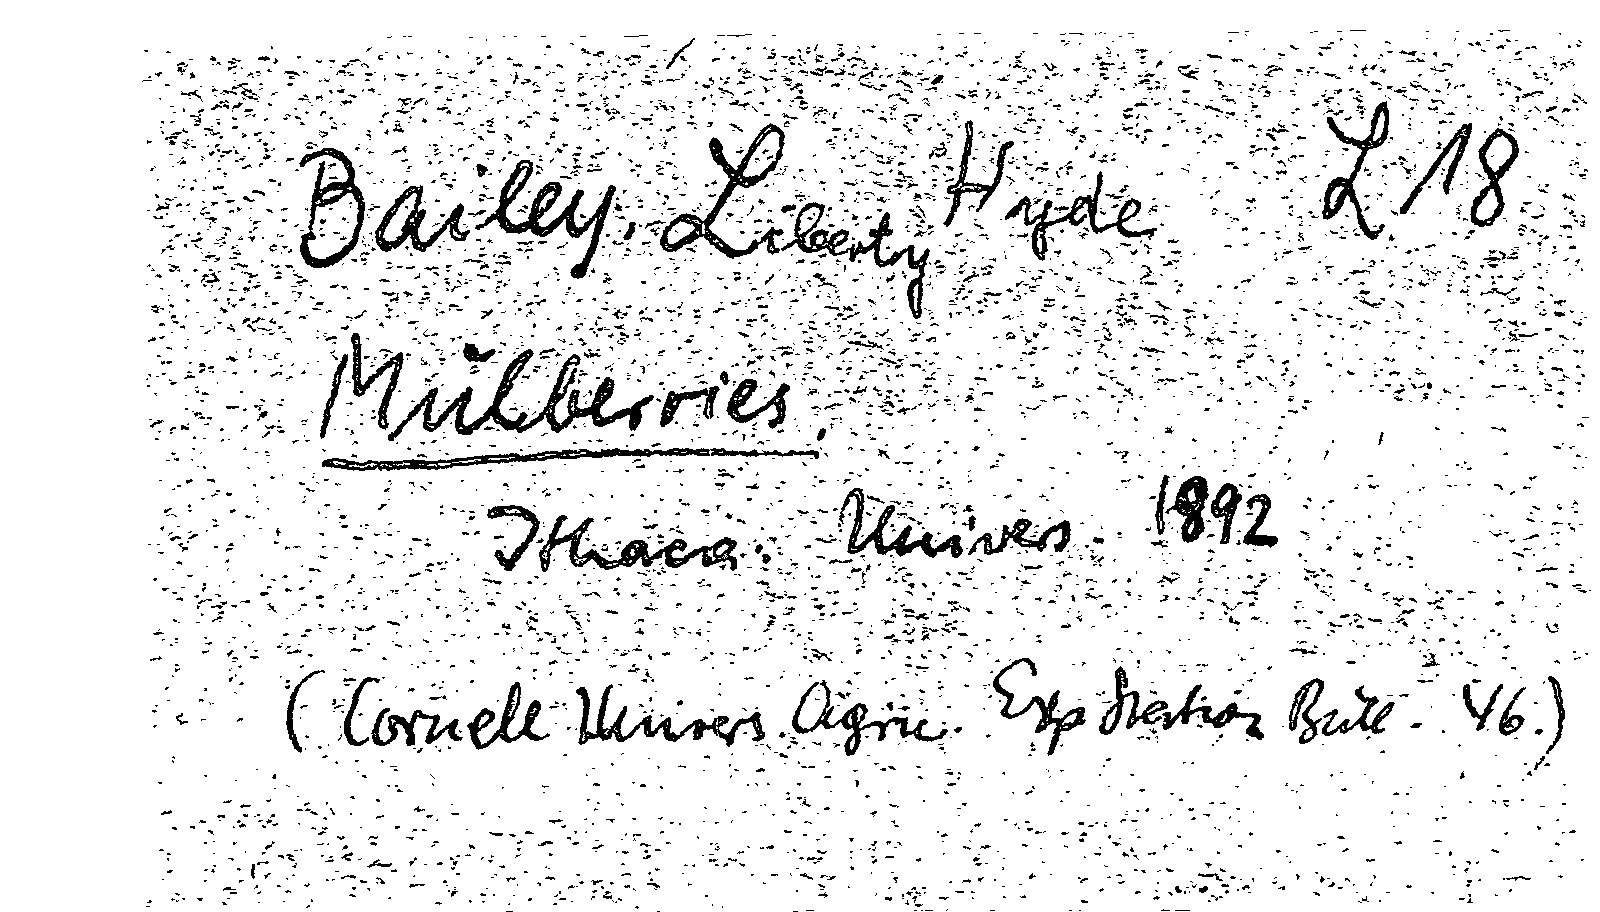 Bailey, Liberty Hyde L 18
Mulberries.
Ithaca: Univers. 1892
(Cornell Univers. Agric. Exp Station Bull. 46.)